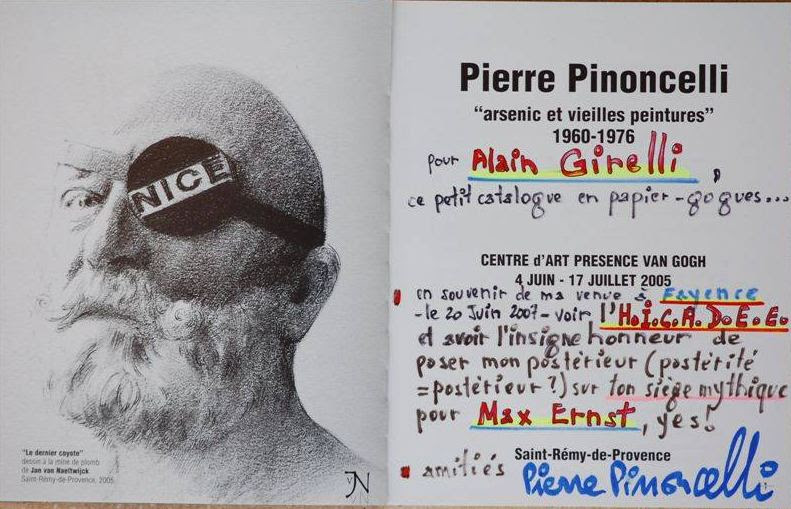 NICE
"Le dernier coyote"
dessin à la mine de plomb
de Jan van Naeltwijck
Saint-Rémy-de-Provence, 2005
JN
Pierre Pinoncelli
"arsenic et vieilles peintures"
1960-1976
pour Alain Girelli,
ce petit catalogue en papier-gogues...
CENTRE d'ART PRESENCE VAN GOGH
4 JUIN - 17 JUILLET 2005
en souvenir de ma venue à Fayence
-le 20 Juin 2007- voir l'H.I.C.A.D.E.E.
et avoir l'insigne honneur de
poser mon postérieur (postérité
=postérieur?) sur ton siège mythique
pour Max Ernst, yes!
Saint-Rémy-de-Provence
amitiés Pierre Pinoncelli